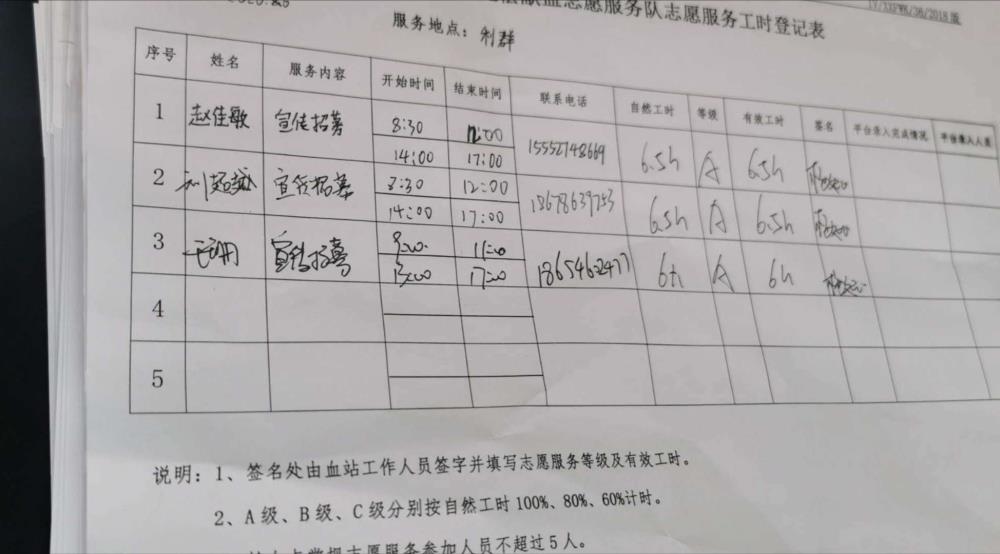 献血志愿服务队志愿服务工时登记表
服务地点：利群
序号 姓名 服务内容 开始时间 结束时间 联系电话 自然工时 等级 有效工时 签名 平台录入完成情况 平台录入人员
1 赵佳敏 宣传招募 8:30 12:00 15552748669 6.5h A 6.5h
14:00 17:00
2 刘超越 宣传招募 8:30 12:00 18678639753 6.5h A 6.5h
14:00 17:00
3 宣传招募 8:00 11:00 6h A 6h
13:00 17:00
4
5
说明：1、签名处由血站工作人员签字并填写志愿服务等级及有效工时。
2、A级、B级、C级分别按自然工时100%、80%、60%计时。
志愿服务参加人员不超过5人。